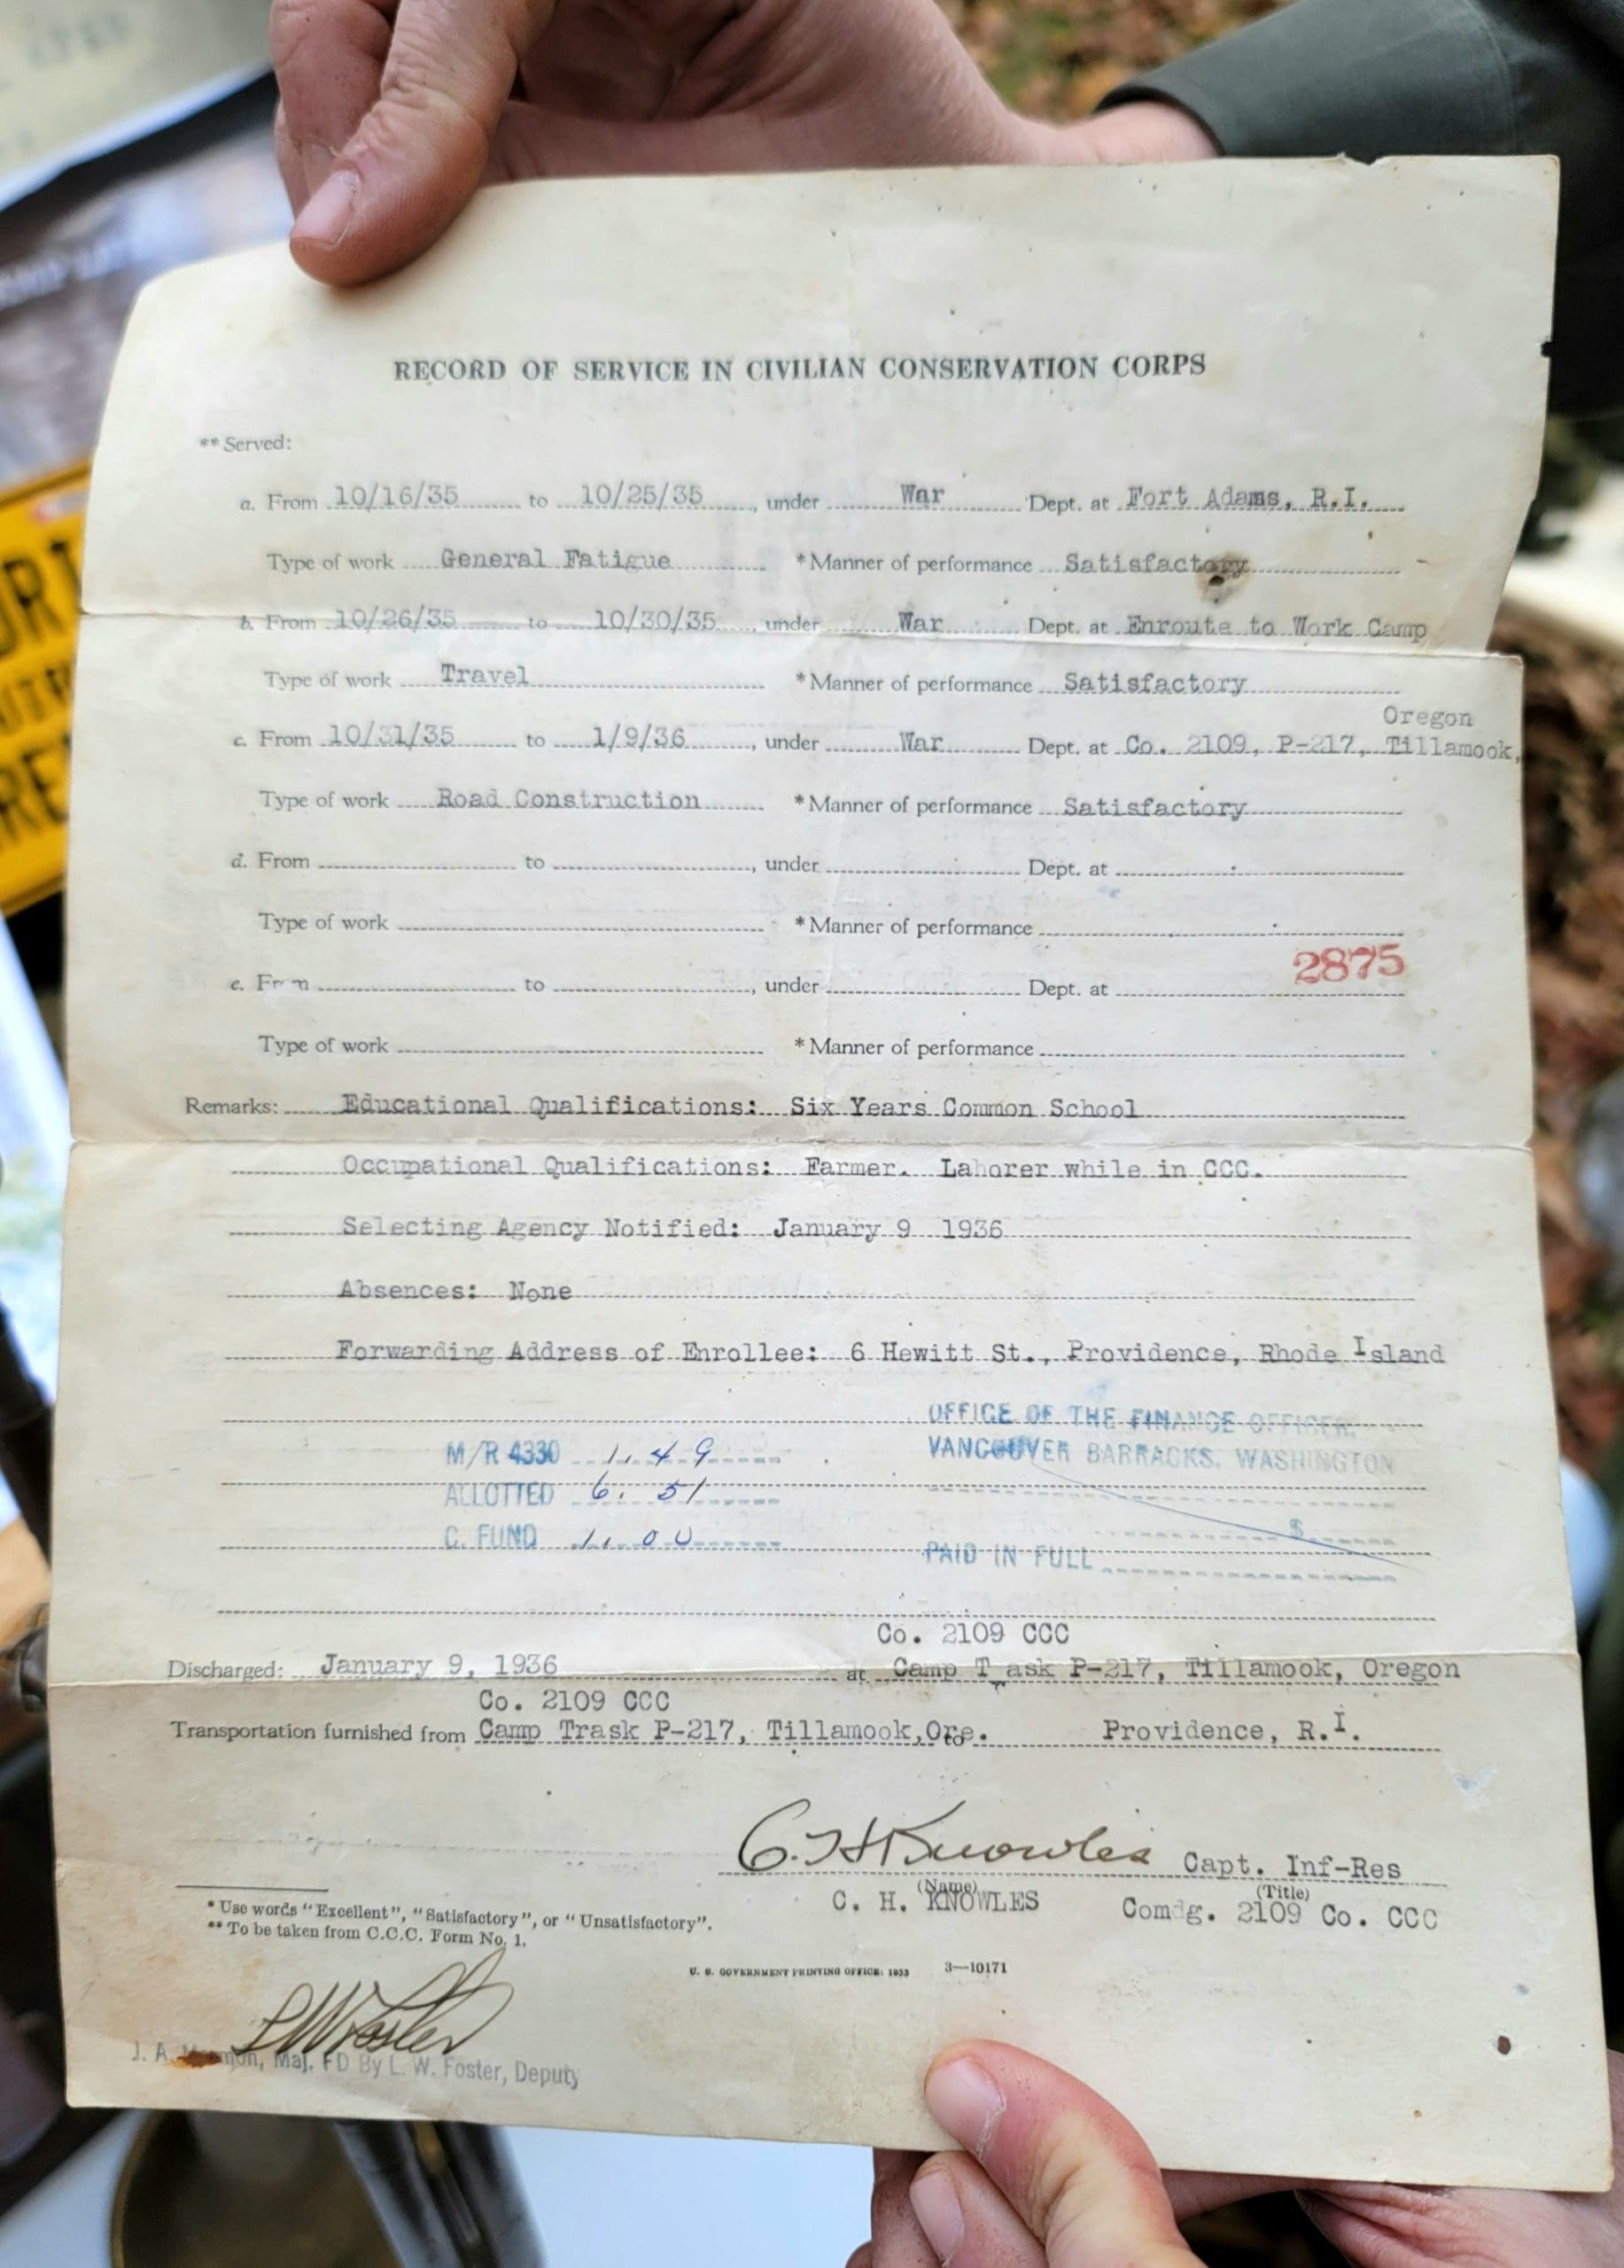 RECORD OF SERVICE IN CIVILIAN CONSERVATION CORPS
** Served:
a. From 10/16/35 to 10/25/35, under War Dept. at Fort Adams, R.I.
Type of work General Fatigue * Manner of performance Satisfactory
b. From 10/26/35 to 10/30/35, under War Dept. at Enroute to Work Camp
Type of work Travel * Manner of performance Satisfactory
Oregon
c. From 10/31/35 to 1/9/36, under War Dept. at Co. 2109, P-217, Tillamook,
Type of work Road Construction * Manner of performance Satisfactory
d. From to , under Dept. at
Type of work * Manner of performance
2875
e. From to , under Dept. at
Type of work * Manner of performance
Remarks: Educational Qualifications: Six Years Common School
Occupational Qualifications: Farmer. Laborer while in CCC.
Selecting Agency Notified: January 9 1936
Absences: None
Forwarding Address of Enrollee: 6 Hewitt St., Providence, Rhode Island
OFFICE OF THE FINANCE OFFICER,
M/R 4330 1.49 VANCOUVER BARRACKS, WASHINGTON
ALLOTTED 6.51
$
C. FUND 1.00 PAID IN FULL
Co. 2109 CCC
Discharged: January 9, 1936 at Camp T ask P-217, Tillamook, Oregon
Co. 2109 CCC
Transportation furnished from Camp Trask P-217, Tillamook,Ore. to Providence, R.I.
C. H. Knowles Capt. Inf-Res
(Name) (Title)
C. H. KNOWLES Comdg. 2109 Co. CCC
* Use words "Excellent", "Satisfactory", or "Unsatisfactory".
** To be taken from C.C.C. Form No. 1.
U. S. GOVERNMENT PRINTING OFFICE: 1933 3—10171
L W Foster
J. A. Maj. FD By L. W. Foster, Deputy